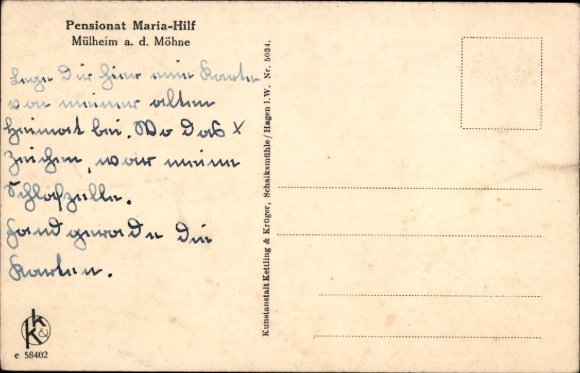 Pensionat Maria-Hilf
Mülheim a. d. Möhne
Lege Dir hier eine Karte
von meiner alten
Heimat bei. Wo das x
Zeichen, war meine
Schlafzelle.
Fand gerade die
Karten.
Kunstanstalt Kettling & Krüger, Schalksmühle/Hagen i. W. Nr. 5034.
k & k
e 58402